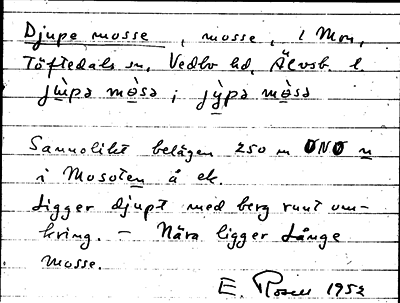 Djupe mosse, mosse, i Mon,
Töftedals sn, Vedbo hd, Älvsb. l.
jẁpa mòsa ; jỳpa mòsa
Sannolikt belägen 250 m ONO n
i Mosoten å ek.
Ligger djupt med berg runt om-
kring. – Nära ligger Långe
mosse.
E. Rosell 1952